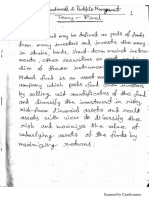 Investments & Portfolio Management
Theory - Final
may be defined as pools of funds
from many investors and invests the money
in stocks, bonds, short term market instru-
ments, other securities
of these instruments.
Mutual fund is an asset management
company which pools fund
by selling unit certificates of the fund
and diversify the investment in risky,
risk-free financial assets and could
assets with view to diversify the
risk and maximize the value of
underlying assets of the fund by
maximizing returns.
Scanned by CamScanner